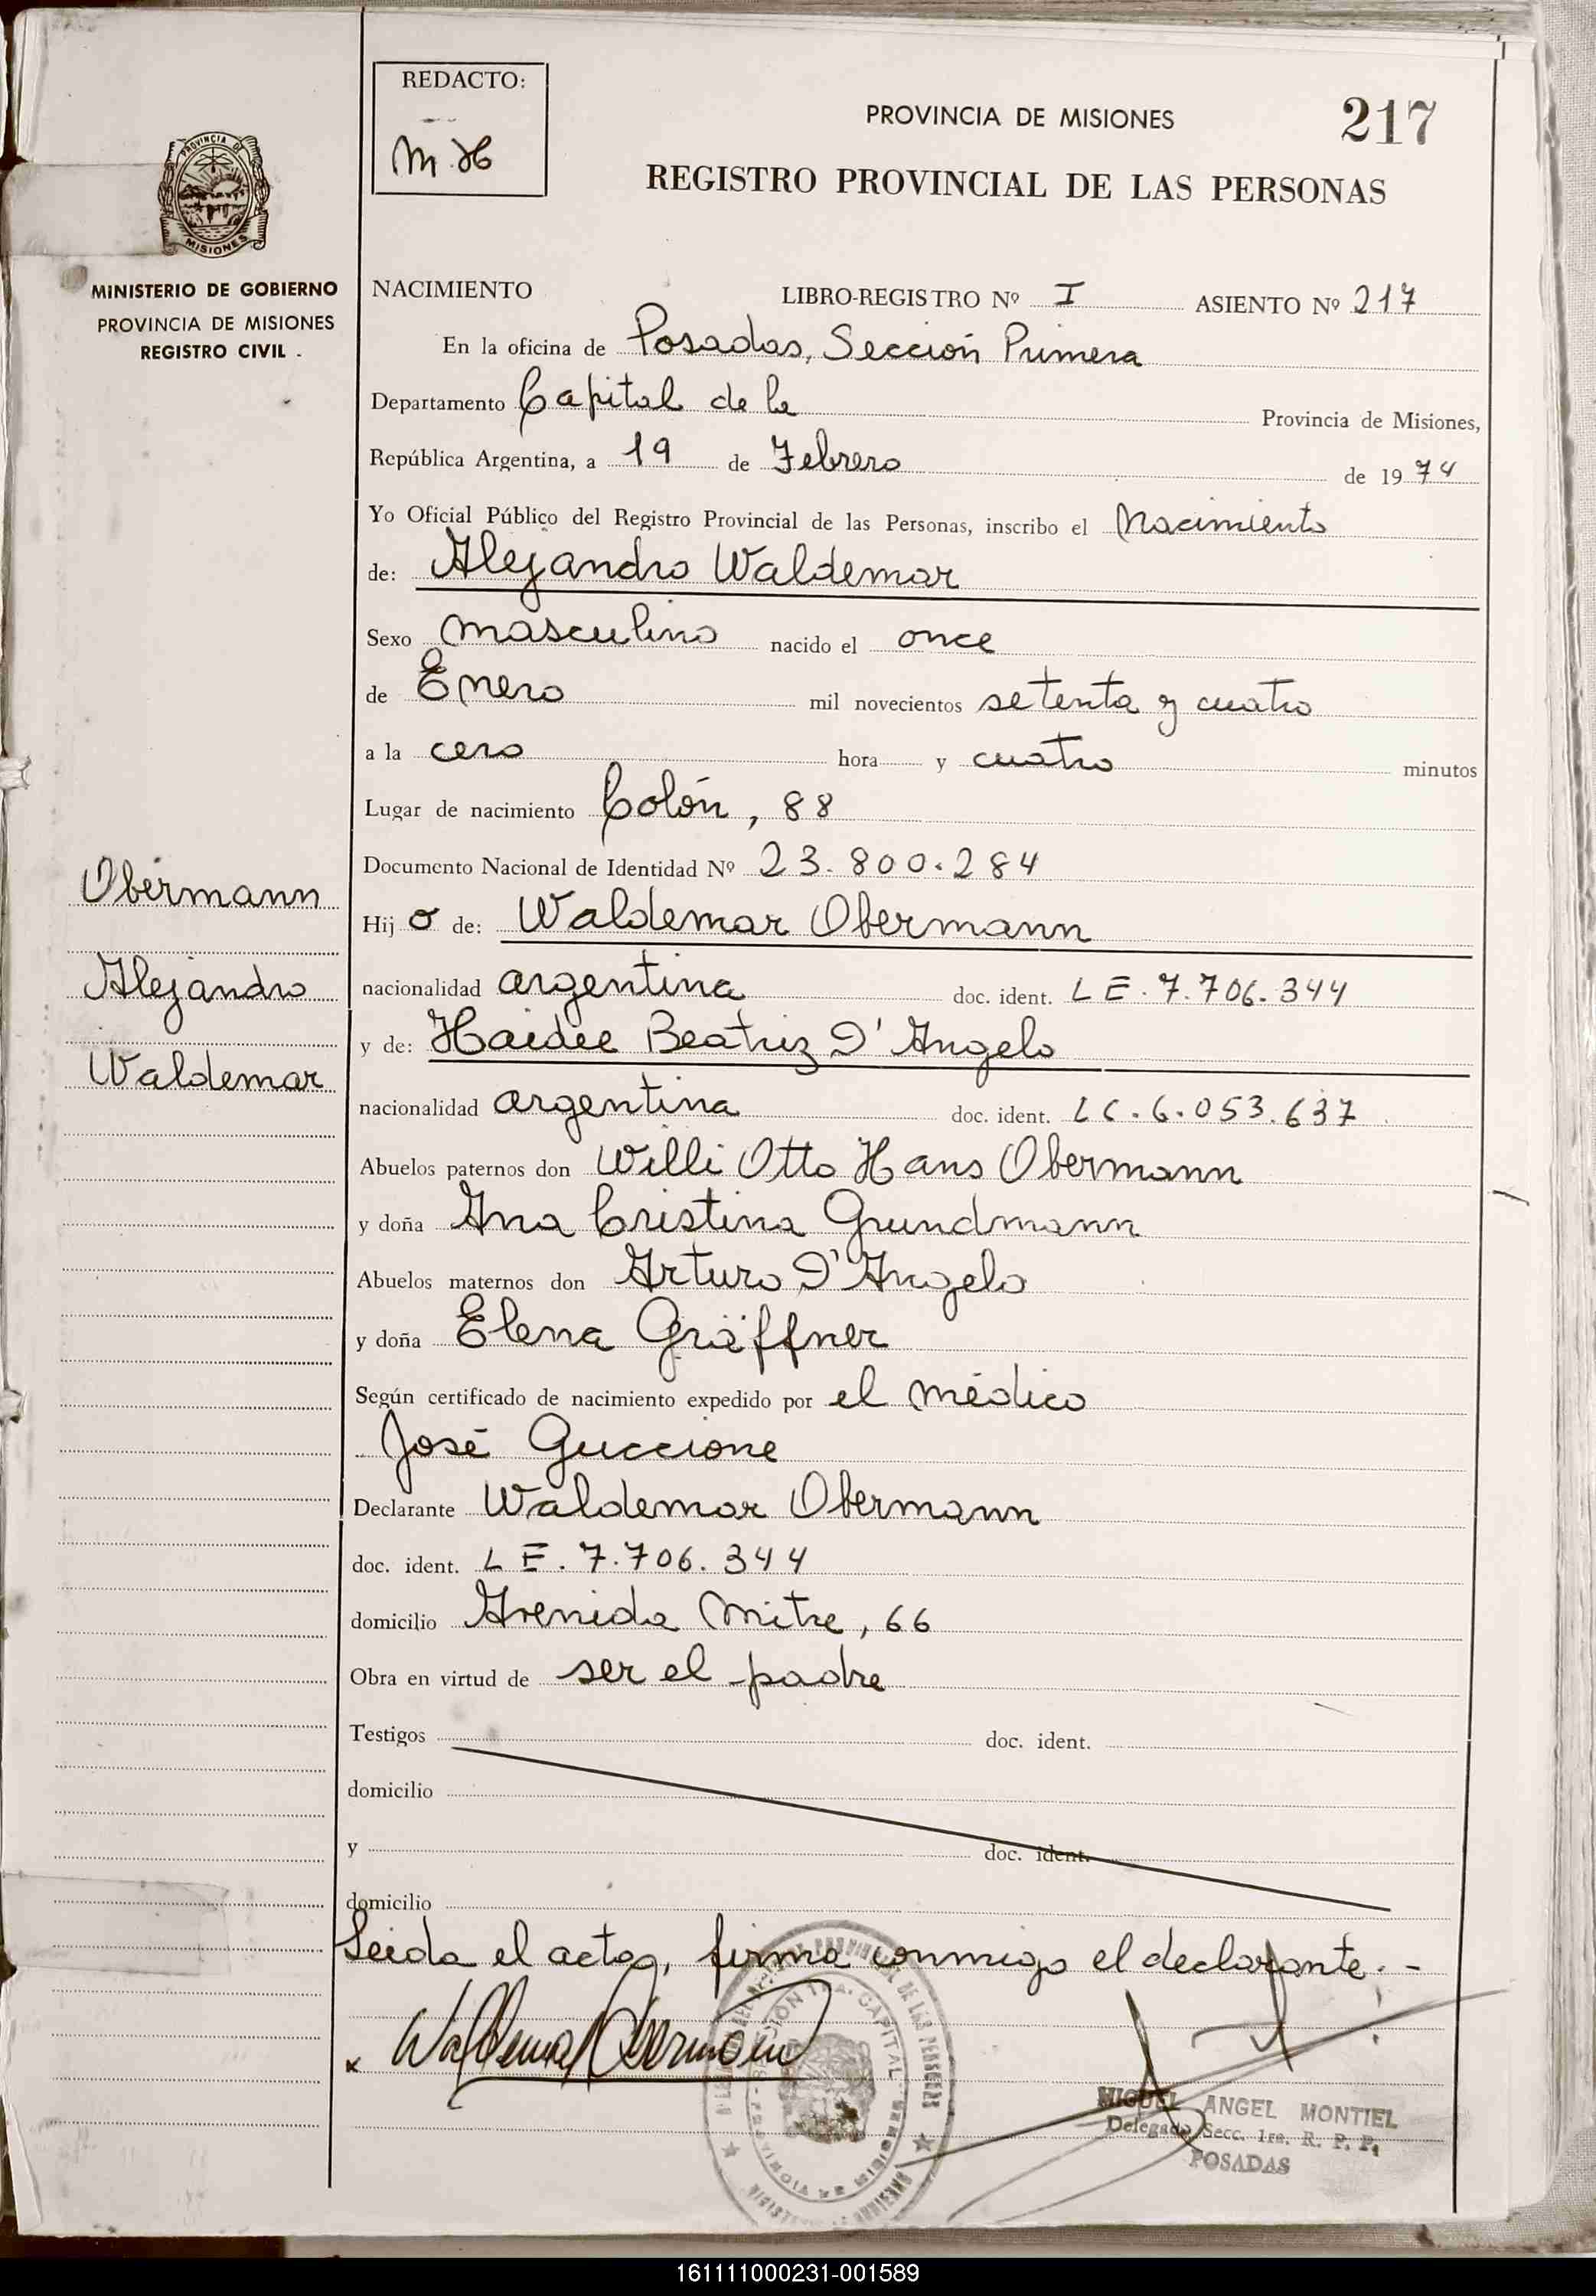 REDACTO:
M.H
PROVINCIA DE MISIONES
217
REGISTRO PROVINCIAL DE LAS PERSONAS
PROVINCIA DE
MISIONES
MINISTERIO DE GOBIERNO
PROVINCIA DE MISIONES
REGISTRO CIVIL .
NACIMIENTO LIBRO-REGISTRO Nº I ASIENTO Nº 217
En la oficina de Posadas, Sección Primera
Departamento Capital de la Provincia de Misiones,
República Argentina, a 19 de Febrero de 1974
Yo Oficial Público del Registro Provincial de las Personas, inscribo el Nacimiento
de: Alejandro Waldemar
Sexo masculino nacido el once
de Enero mil novecientos setenta y cuatro
a la cero hora y cuatro minutos
Lugar de nacimiento Colón, 88
Documento Nacional de Identidad Nº 23.800.284
Obermann
Hijo de: Waldemar Obermann
Alejandro
nacionalidad argentina doc. ident. LE.7.706.344
y de: Haidée Beatriz D'Angelo
Waldemar
nacionalidad argentina doc. ident. LC.6.053.637
Abuelos paternos don Willi Otto Hans Obermann
y doña Ana Cristina Grundmann
Abuelos maternos don Arturo D'Angelo
y doña Elena Gräffner
Según certificado de nacimiento expedido por el médico
José Guccione
Declarante Waldemar Obermann
doc. ident. LE.7.706.344
domicilio Avenida Mitre, 66
Obra en virtud de ser el padre
Testigos doc. ident.
domicilio
y doc. ident.
domicilio
Leida el acta, firma conmigo el declarante.-
x Waldemar Obermann
MIGUEL ANGEL MONTIEL
Delegado Secc. 1ra. R. P. P.
POSADAS
161111000231-001589